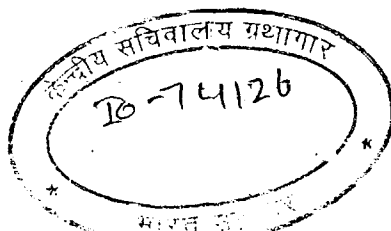 केन्द्रीय सचिवालय ग्रंथागार
IO-74126
भारत